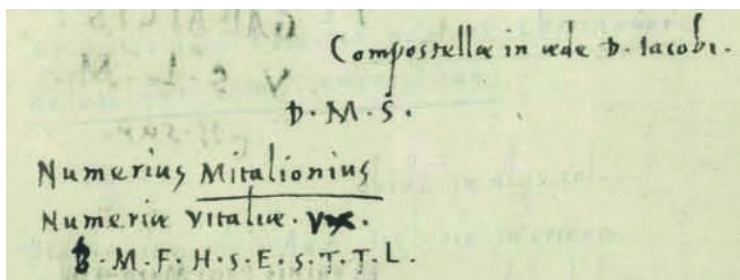 Compostellæ in æde D. Iacobi.
D. M. S.
Numerius Mitalionius
Numeriæ Vitaliæ. Vx.
B. M. F. H. S. E. S. T. T. L.